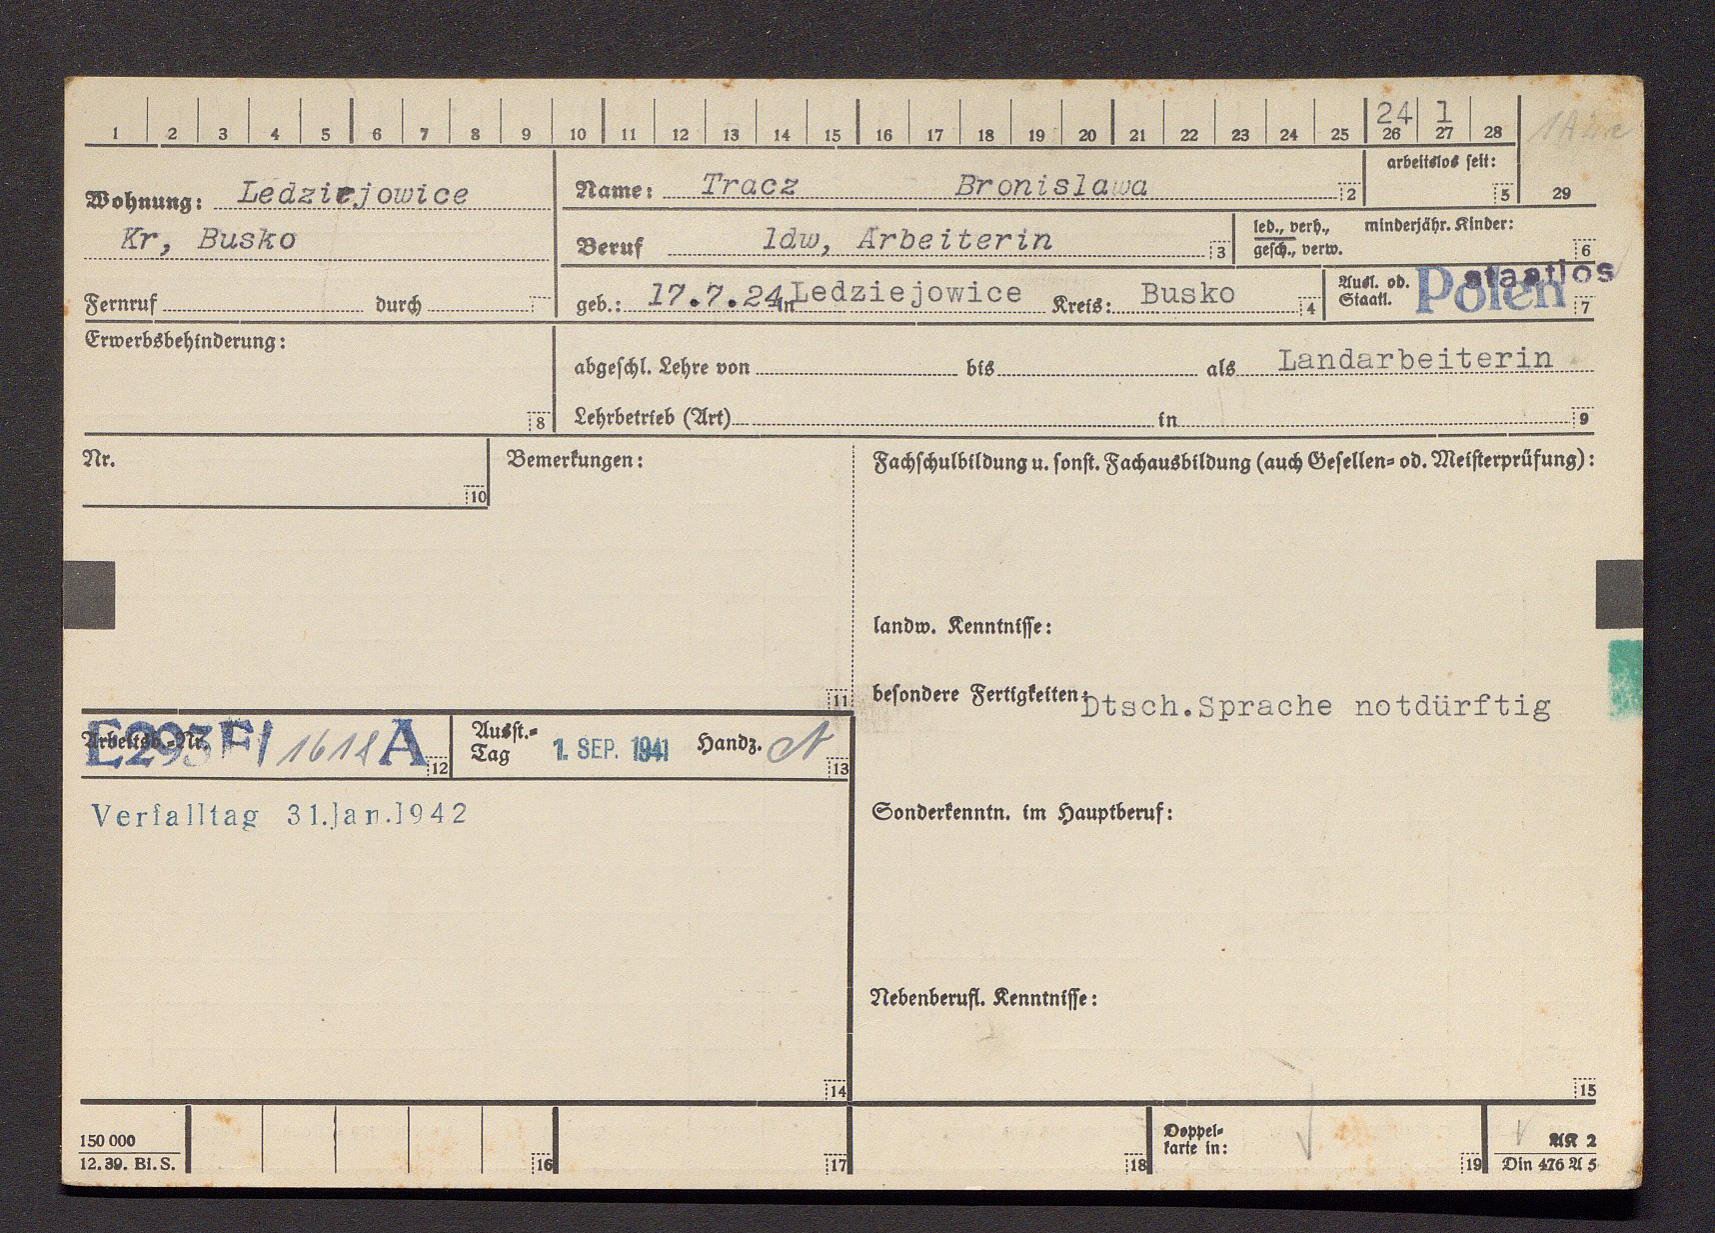 24 1
1 2 3 4 5 6 7 8 9 10 11 12 13 14 15 16 17 18 19 20 21 22 23 24 25 26 27 28
29
Wohnung: Ledziejowice
Kr, Busko
Name: Tracz Bronislawa 2
arbeitslos seit: 5
Beruf ldw, Arbeiterin 3
led., verh., minderjähr. Kinder:
gesch., verw. 6
Fernruf durch
geb.: 17.7.24 in Ledziejowice Kreis: Busko 4
Ausl. od. Staatl. Polen staatlos 7
Erwerbsbehinderung: 8
abgeschl. Lehre von bis als Landarbeiterin
Lehrbetrieb (Art) in 9
Nr. 10
Bemerkungen: 11
Fachschulbildung u. sonst. Fachausbildung (auch Gesellen= od. Meisterprüfung):
landw. Kenntnisse:
besondere Fertigkeiten: Dtsch.Sprache notdürftig
Arbeitsb.-Nr. E293F/1618 A 12
Ausst.=
Tag 1. SEP. 1941 Handz. 13
Verfalltag 31.Jan.1942
Sonderkenntn. im Hauptberuf:
Nebenberufl. Kenntnisse:
14
15
150 000
12. 39. Bi. S.
16
17
18
Doppel=
karte in: 19
AK 2
Din 476 A 5